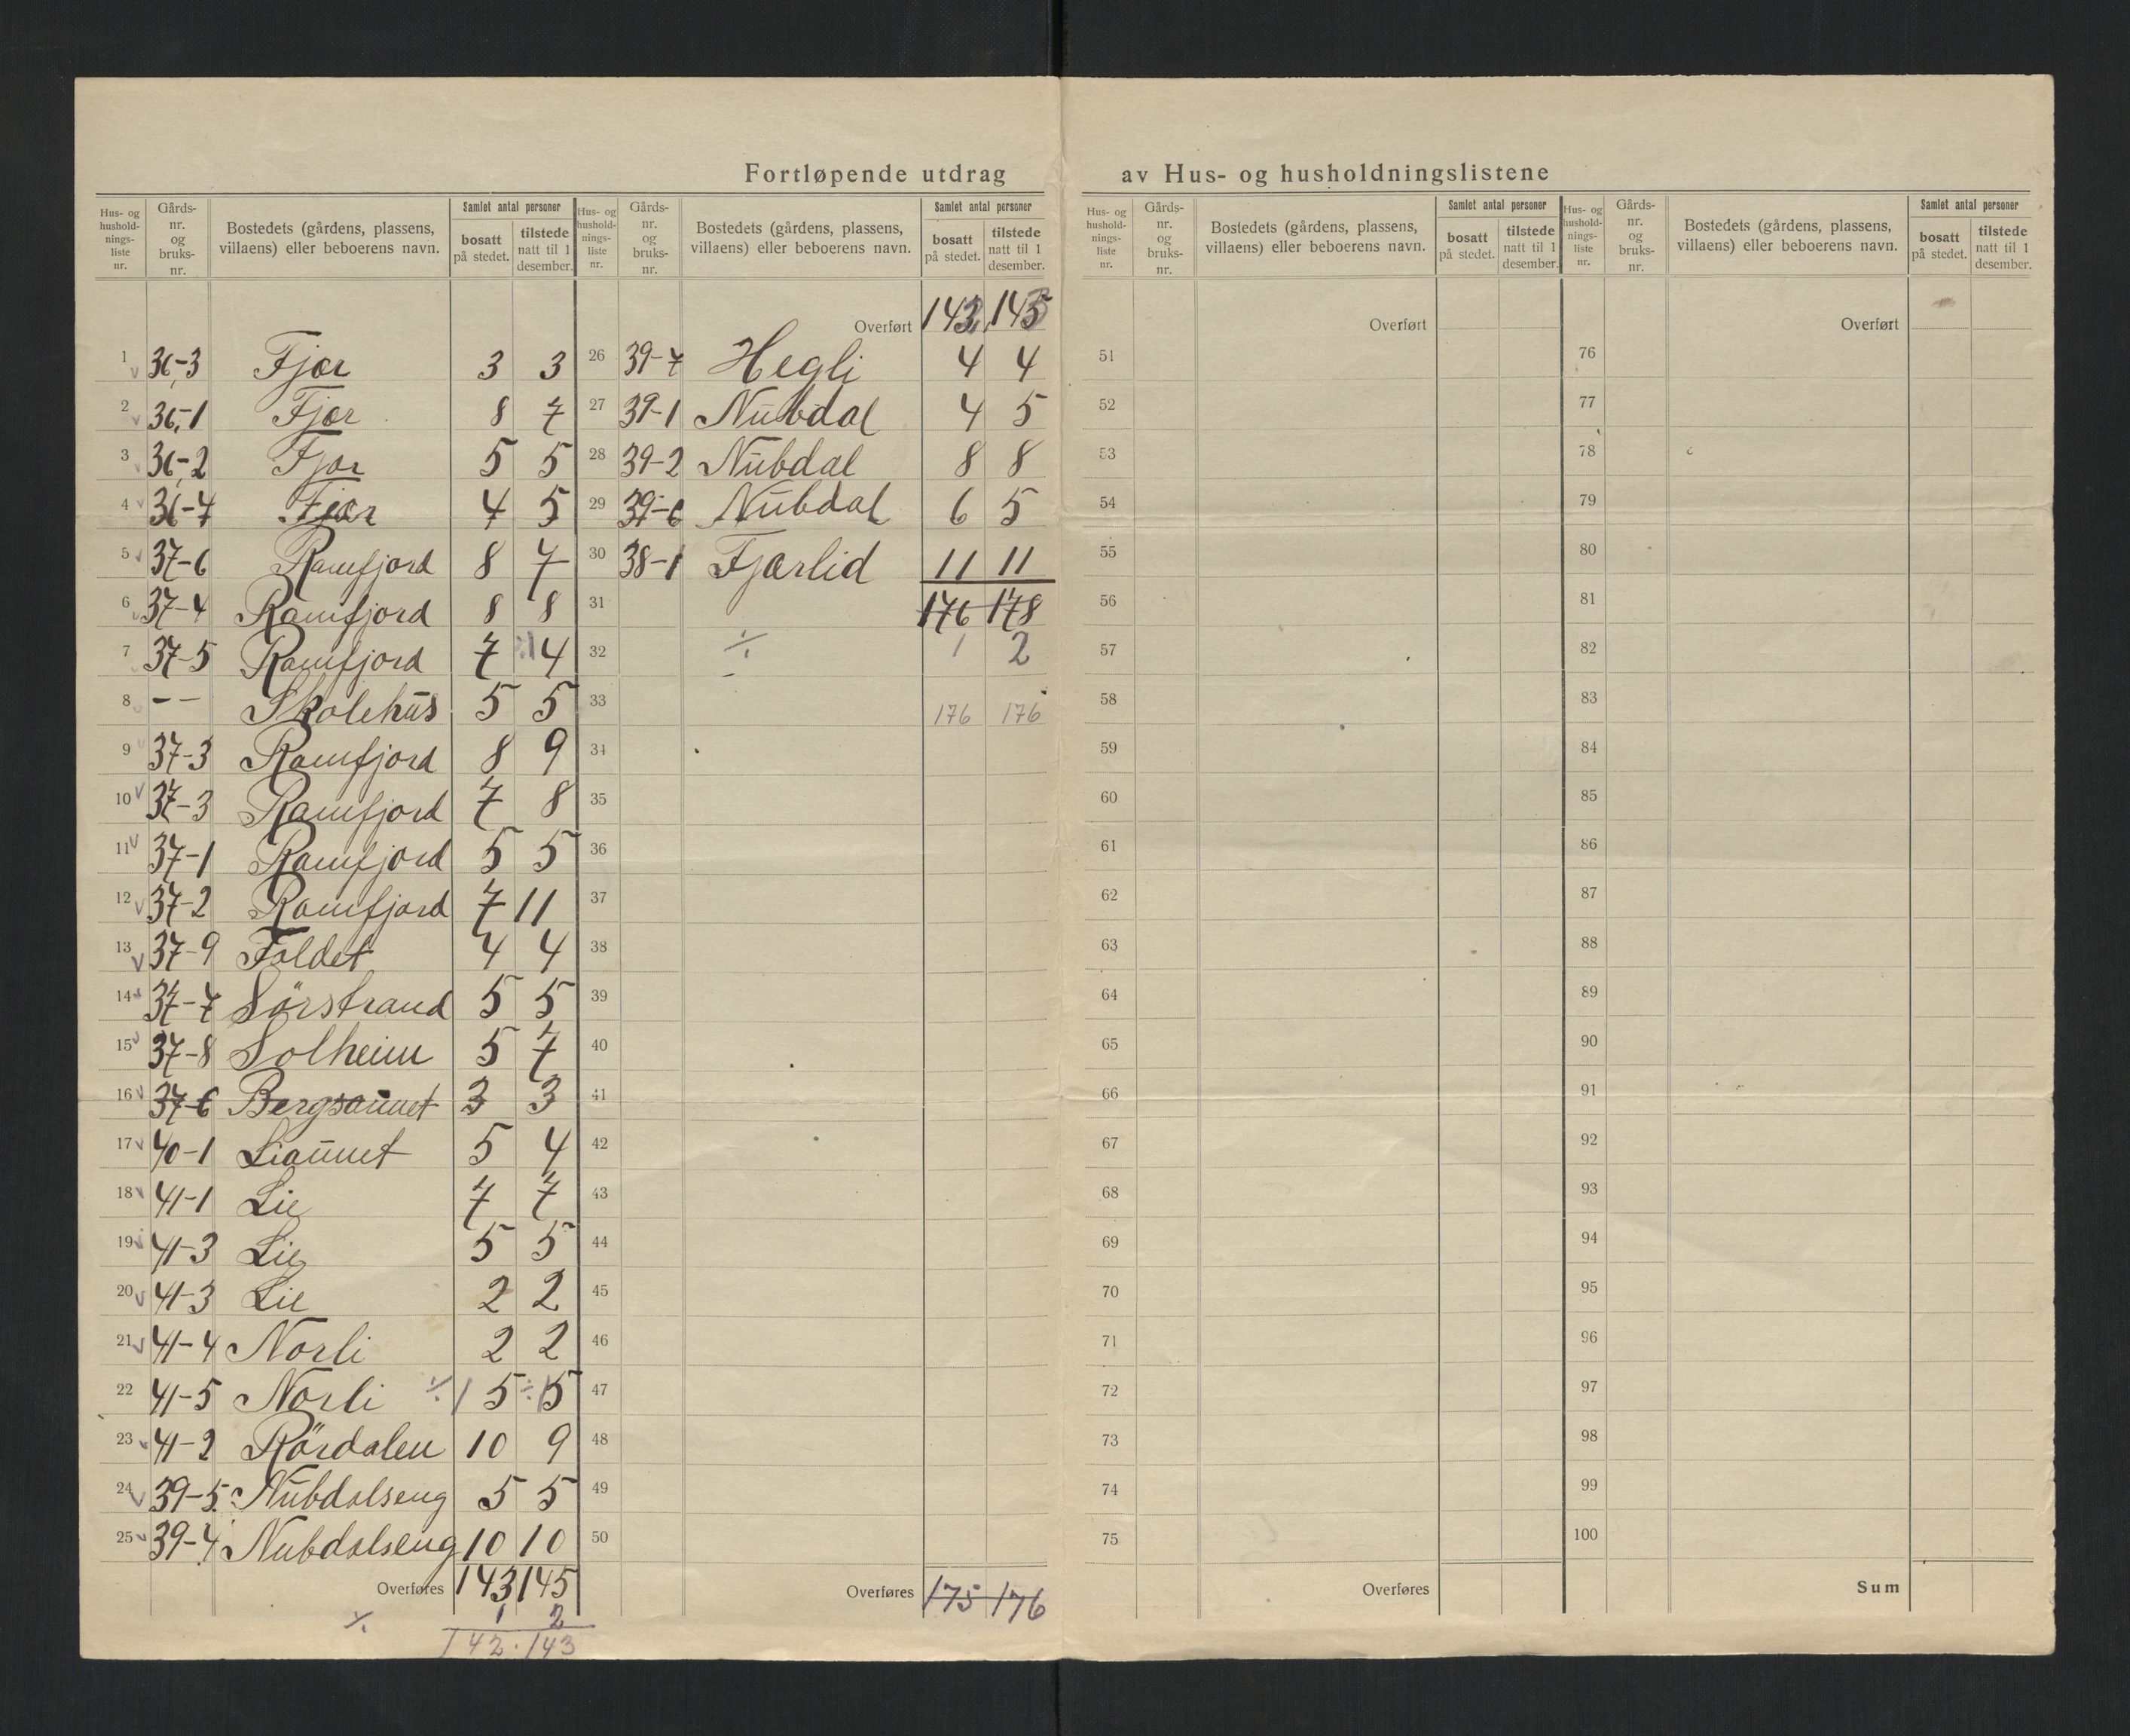 Fortløpende utdrag av Hus- og husholdningslistene
Hus- og hushold-nings-liste nr. Gårds-nr. og bruks-nr. Bostedets (gårdens, plassens, villaens) eller beboerens navn. Samlet antal personer bosatt på stedet. tilstede natt til 1 desember.
1 36-3 Fjær 3 3
2 36-1 Fjær 8 7
3 36-2 Fjær 5 5
4 36-4 Fjær 4 5
5 37-6 Ramfjord 8 7
6 37-4 Ramfjord 8 8
7 37-5 Ramfjord 7 ÷1 4
8 - - Skolehus 5 5
9 37-3 Ramfjord 8 9
10 37-3 Ramfjord 7 8
11 37-1 Ramfjord 5 5
12 37-2 Ramfjord 7 11
13 37-9 Foldet 4 4
14 37-7 Sörstrand 5 5
15 37-8 Solheim 5 7
16 37-6 Bergsaunet 3 3
17 40-1 Liaunet 5 4
18 41-1 Lie 7 7
19 41-3 Lie 5 5
20 41-3 Lie 2 2
21 41-4 Norli 2 2
22 41-5 Norli ÷1 5 ÷1 5
23 41-2 Rördalen 10 9
24 39-5 Nubdalseng 5 5
25 39-4 Nubdalseng 10 10
Overføres 143 145
÷ 1 2
142 . 143
Hus- og hushold-nings-liste nr. Gårds-nr. og bruks-nr. Bostedets (gårdens, plassens, villaens) eller beboerens navn. Samlet antal personer bosatt på stedet. tilstede natt til 1 desember.
Overført 143 145
26 39-7 Hegli 4 4
27 39-1 Nubdal 4 5
28 39-2 Nubdal 8 8
29 39-6 Nubdal 6 5
30 38-1 Fjærlid 11 11
31 176 178
32 ÷ 1 2
33 176 176
34
35
36
37
38
39
40
41
42
43
44
45
46
47
48
49
50
Overføres 175 176
Hus- og hushold-nings-liste nr. Gårds-nr. og bruks-nr. Bostedets (gårdens, plassens, villaens) eller beboerens navn. Samlet antal personer bosatt på stedet. tilstede natt til 1 desember.
Overført
51
52
53
54
55
56
57
58
59
60
61
62
63
64
65
66
67
68
69
70
71
72
73
74
75
Overføres
Hus- og hushold-nings-liste nr. Gårds-nr. og bruks-nr. Bostedets (gårdens, plassens, villaens) eller beboerens navn. Samlet antal personer bosatt på stedet. tilstede natt til 1 desember.
Overført
76
77
78
79
80
81
82
83
84
85
86
87
88
89
90
91
92
93
94
95
96
97
98
99
100
Sum